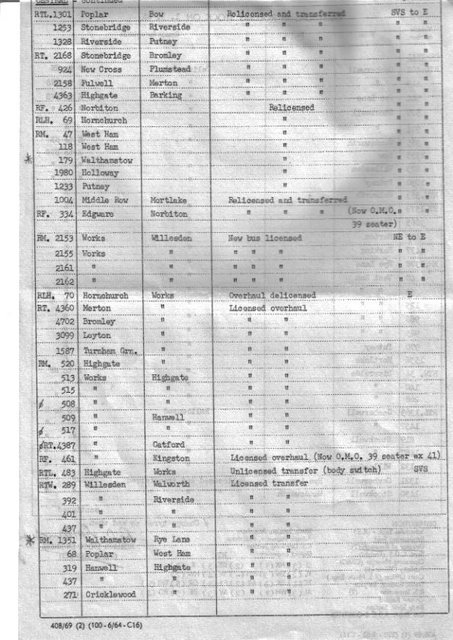 CENTRAL - continued
RTL.1301 Poplar Row Relicensed and transferred SVS to E
1253 Stonebridge Riverside " " " " "
1328 Riverside Putney " " " " "
RT. 2168 Stonebridge Bromley " " " " "
924 New Cross Plumstead " " " " "
2158 Fulwell Merton " " " " "
4363 Highgate Barking " " " " "
RF. 426 Norbiton Relicensed " "
RLH. 69 Hornchurch " " "
RM. 47 West Ham " " "
118 West Ham " " "
* 179 Walthamstow " " "
1980 Holloway " " "
1233 Putney " " "
1004 Middle Row Mortlake Relicensed and transferred " "
RF. 334 Edgware Norbiton " " " (Now O.M.O. " "
39 seater)
RM. 2153 Works Willesden New bus licensed NE to E
2155 Works " " " " " "
2161 " " " " " " "
2162 " " " " " " "
RLH. 70 Hornchurch Works Overhaul delicensed E
RT. 4360 Merton Licensed overhaul
4702 Bromley " "
3099 Leyton " "
1587 Turnham Grn. " "
RM. 520 Highgate " "
513 Works Highgate " "
515 " " " "
ø 508 " " " "
509 " Hanwell " "
ø 517 " " " "
øRT.4387 " Catford " "
RF. 461 " Kingston Licensed overhaul (Now O.M.O. 39 seater ex 41)
RTL. 483 Highgate Works Unlicensed transfer (body switch) SVS
RTW. 289 Willesden Walworth Licensed transfer
392 " Riverside " "
401 " " " "
437 " " " "
* RM. 1351 Walthamstow Rye Lane " "
68 Poplar West Ham " "
319 Hanwell Highgate " "
437 " " " "
271 Cricklewood " " "
408/69 (2) (100-6/64-C16)